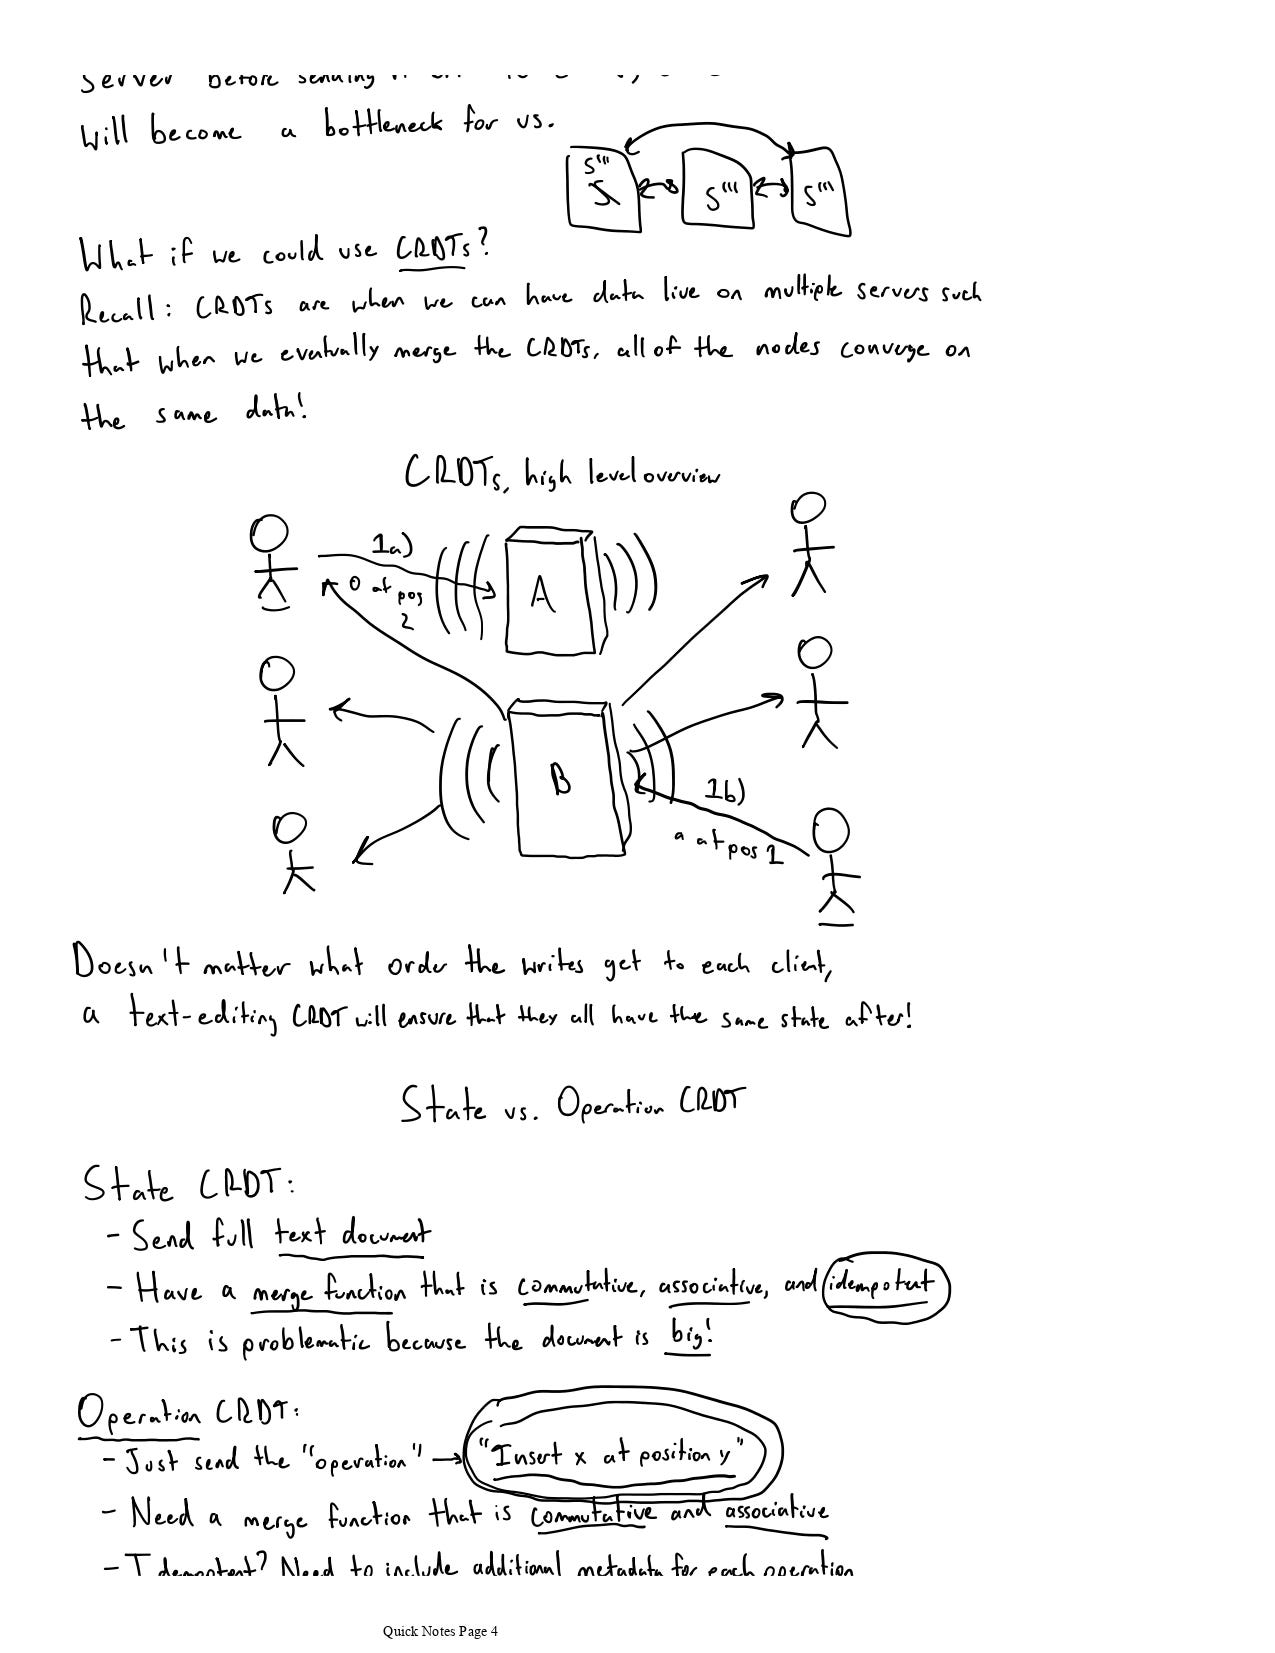 Server before sending
Will become a bottleneck for us.
S'''
S
S'''
S'''
What if we could use CRDTs?
Recall: CRDTs are when we can have data live on multiple servers such
that when we eventually merge the CRDTs, all of the nodes converge on
the same data!
CRDTs, high level overview
1a)
0 at pos
2
A
B
1b)
a at pos 1
Doesn't matter what order the writes get to each client,
a text-editing CRDT will ensure that they all have the same state after!
State vs. Operation CRDT
State CRDT:
- Send full text document
- Have a merge function that is commutative, associative, and idempotent
- This is problematic because the document is big!
Operation CRDT:
- Just send the "operation" → "Insert x at position y"
- Need a merge function that is commutative and associative
- Idempotent? Need to include additional metadata for each operation
Quick Notes Page 4